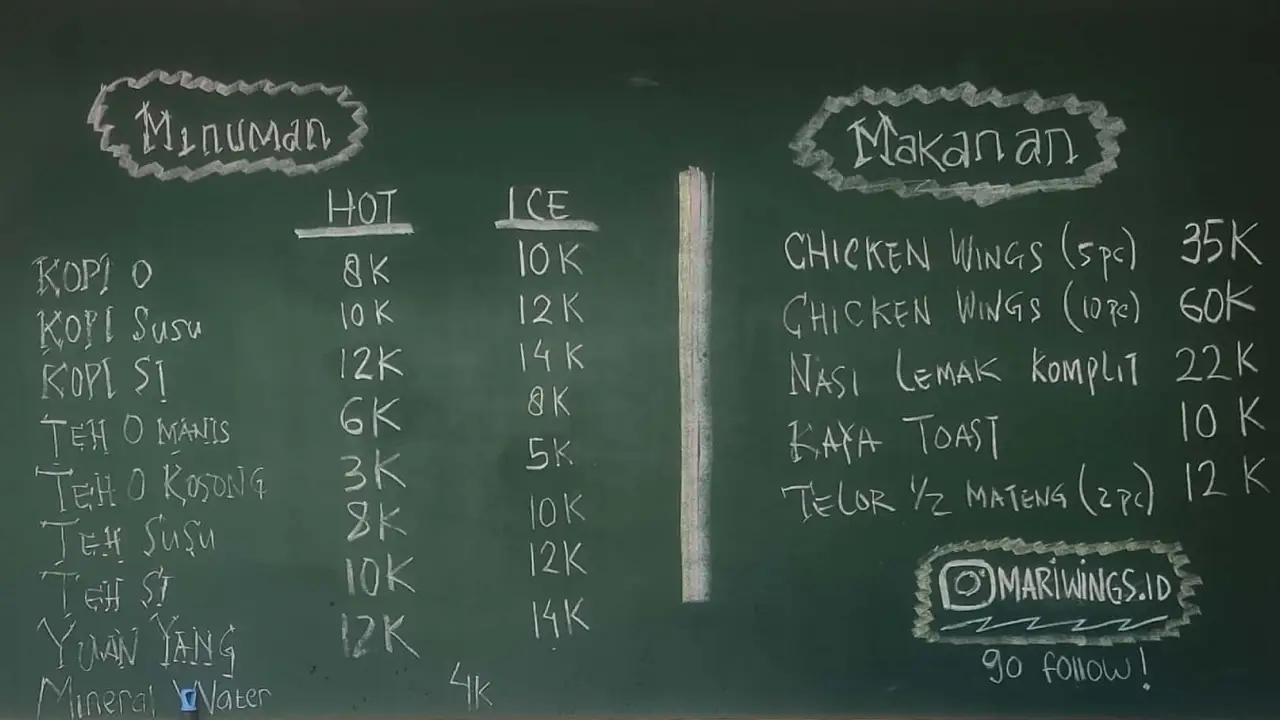 Minuman
HOT ICE
KOPI O 8K 10K
KOPI SUSU 10K 12K
KOPI SI 12K 14K
TEH O MANIS 6K 8K
TEH O KOSONG 3K 5K
TEH SUSU 8K 10K
TEH SI 10K 12K
YUAN YANG 12K 14K
Mineral Water 4K
Makanan
CHICKEN WINGS (5pc) 35K
CHICKEN WINGS (10pc) 60K
NASI LEMAK KOMPLIT 22K
KAYA TOAST 10K
TELOR 1/2 MATENG (2pc) 12K
MARIWINGS.ID
go follow!